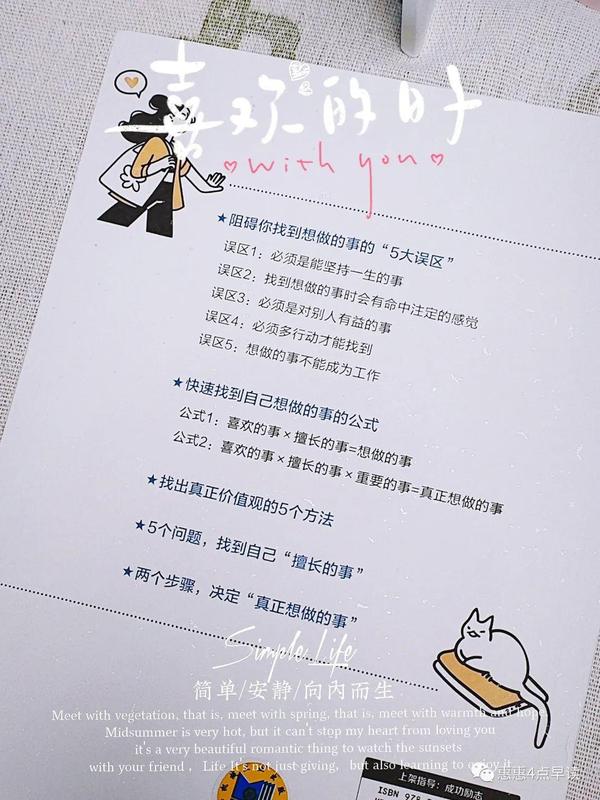 喜欢的时
with you
★阻碍你找到想做的事的“5大误区”
误区1：必须是能坚持一生的事
误区2：找到想做的事时会有命中注定的感觉
误区3：必须是对别人有益的事
误区4：必须多行动才能找到
误区5：想做的事不能成为工作
★快速找到自己想做的事的公式
公式1：喜欢的事×擅长的事=想做的事
公式2：喜欢的事×擅长的事×重要的事=真正想做的事
★找出真正价值观的5个方法
★5个问题，找到自己“擅长的事”
★两个步骤，决定“真正想做的事”
Simple Life
简单/安静/向内而生
Meet with vegetation, that is, meet with spring, that is, meet with warmth and hope
Midsummer is very hot, but it can't stop my heart from loving you
it's a very beautiful romantic thing to watch the sunsets
with your friend , Life It's not just giving, but also learning to enjoy it
惠惠4点早读
上架指导：成功励志
ISBN 978